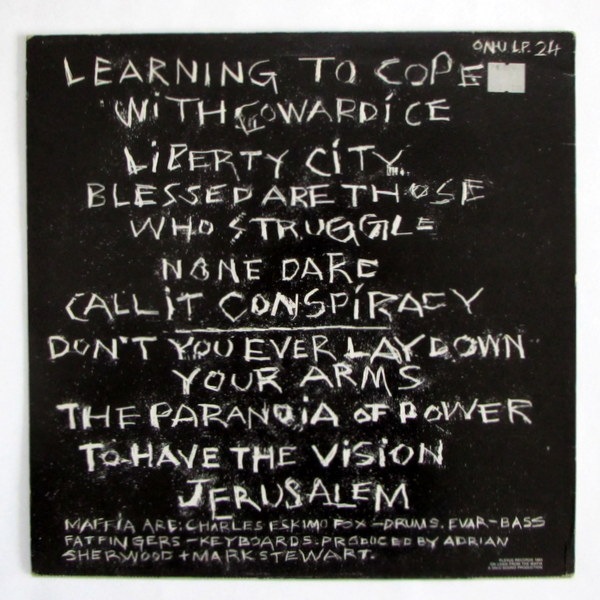 ON-U L.P. 24
LEARNING TO COPE
WITH COWARDICE
LIBERTY CITY.
BLESSED ARE THOSE
WHO STRUGGLE
NONE DARE
CALL IT CONSPIRACY
DON'T YOU EVER LAY DOWN
YOUR ARMS
THE PARANOIA OF POWER
TO HAVE THE VISION
JERUSALEM
MAFFIA ARE: CHARLES ESKIMO FOX - DRUMS. EVAR - BASS
FATFINGERS - KEYBOARDS. PRODUCED BY ADRIAN
SHERWOOD + MARK STEWART.